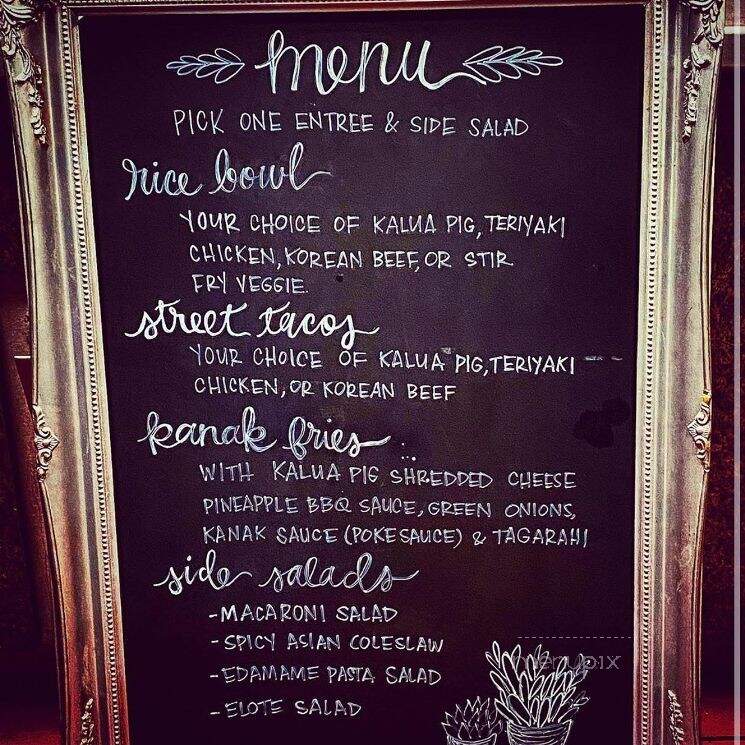 menu
PICK ONE ENTREE & SIDE SALAD
rice bowl
YOUR CHOICE OF KALUA PIG, TERIYAKI
CHICKEN, KOREAN BEEF, OR STIR
FRY VEGGIE.
street tacos
YOUR CHOICE OF KALUA PIG, TERIYAKI
CHICKEN, OR KOREAN BEEF
kanak fries
WITH KALUA PIG SHREDDED CHEESE
PINEAPPLE BBQ SAUCE, GREEN ONIONS,
KANAK SAUCE (POKE SAUCE) & TAGARAHI
side salads
- MACARONI SALAD
- SPICY ASIAN COLESLAW
- EDAMAME PASTA SALAD
- ELOTE SALAD
menupix